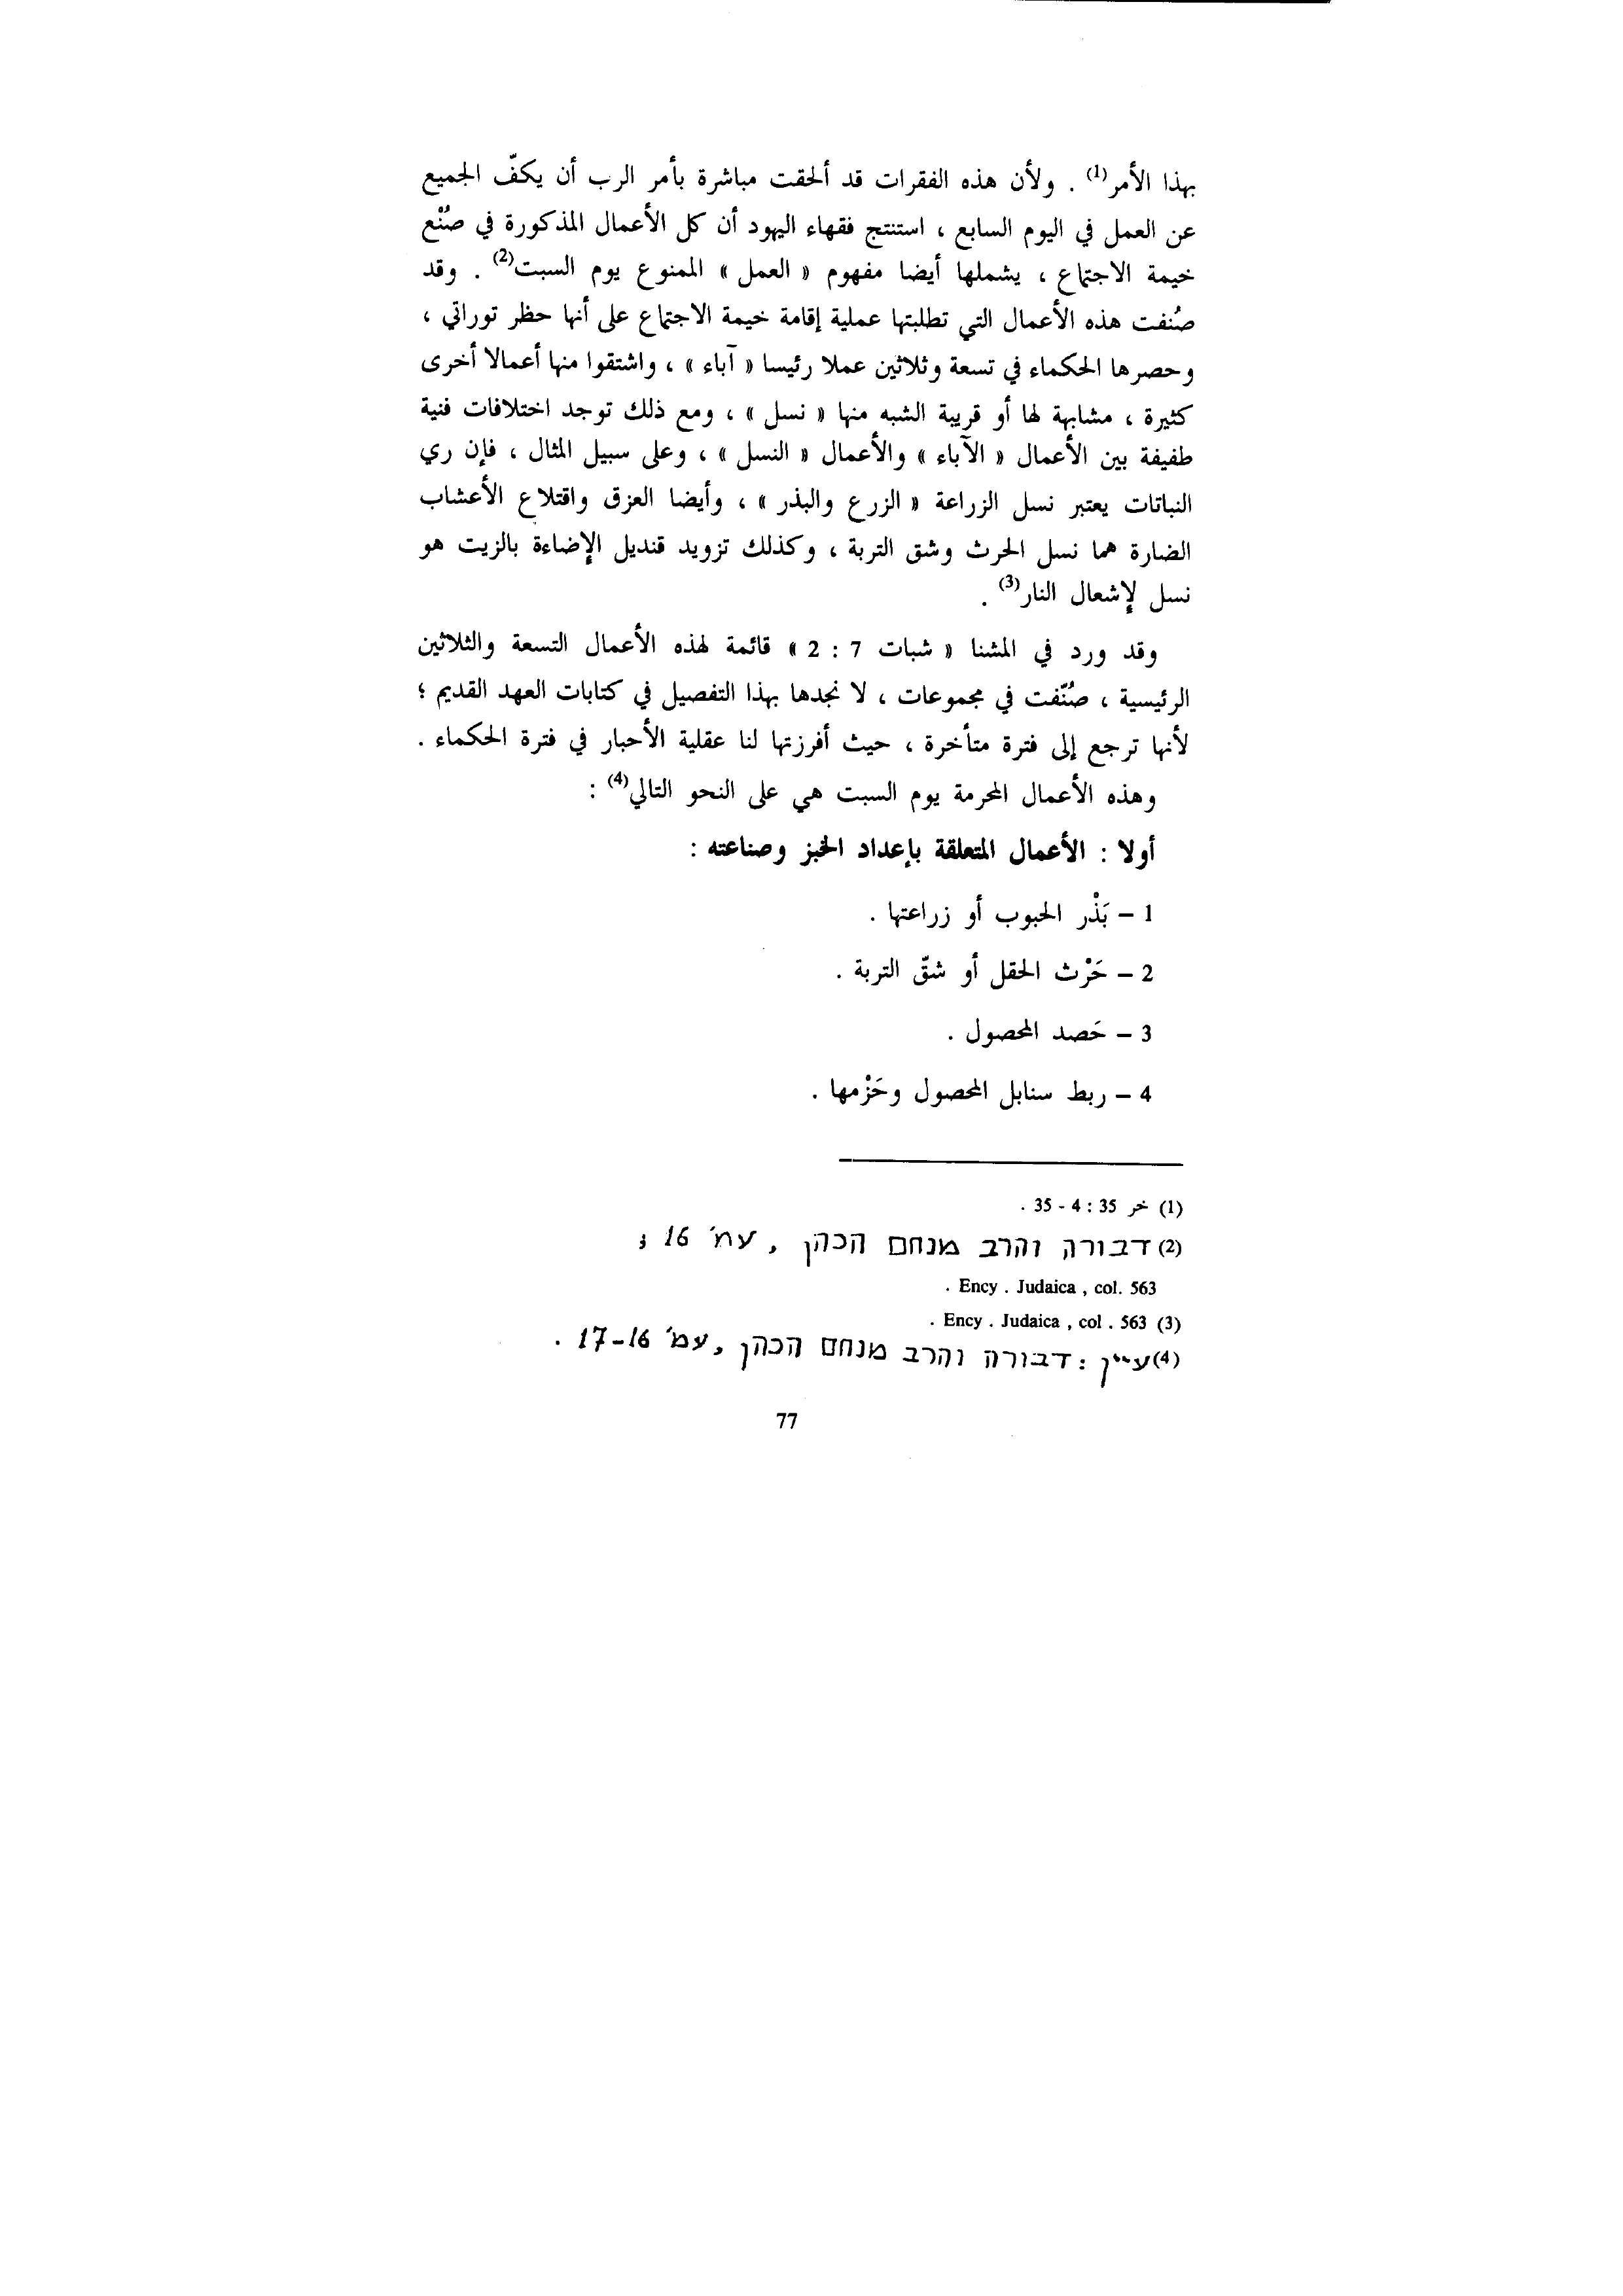 بهذا الأمر(1) . ولأن هذه الفقرات قد ألحقت مباشرة بأمر الرب أن يكفّ الجميع
عن العمل في اليوم السابع ، استنتج فقهاء اليهود أن كل الأعمال المذكورة في صُنْع
خيمة الاجتماع ، يشملها أيضا مفهوم « العمل » الممنوع يوم السبت(2) . وقد
صُنفت هذه الأعمال التي تطلبتها عملية إقامة خيمة الاجتماع على أنها حظر توراتي ،
وحصرها الحكماء في تسعة وثلاثين عملا رئيسا « آباء » ، واشتقوا منها أعمالا أخرى
كثيرة ، مشابهة لها أو قريبة الشبه منها « نسل » ، ومع ذلك توجد اختلافات فنية
طفيفة بين الأعمال « الآباء » والأعمال « النسل » ، وعلى سبيل المثال ، فإن ري
النباتات يعتبر نسل الزراعة « الزرع والبذر » ، وأيضا العزق واقتلاع الأعشاب
الضارة هما نسل الحرث وشق التربة ، وكذلك تزويد قنديل الإضاءة بالزيت هو
نسل لإشعال النار(3) .
وقد ورد في المشنا « شبات 7 : 2 » قائمة لهذه الأعمال التسعة والثلاثين
الرئيسية ، صُنّفت في مجموعات ، لا نجدها بهذا التفصيل في كتابات العهد القديم ؛
لأنها ترجع إلى فترة متأخرة ، حيث أفرزتها لنا عقلية الأحبار في فترة الحكماء .
وهذه الأعمال المحرمة يوم السبت هي على النحو التالي(4) :
أولا : الأعمال المتعلقة بإعداد الخبز وصناعته :
1 – بَذْر الحبوب أو زراعتها .
2 – حَرْث الحقل أو شقّ التربة .
3 – حَصد المحصول .
4 – ربط سنابل المحصول وحَزْمها .
(1) خر 35 : 4 - 35 .
(2) דבורה והרב מנחם הכהן , עמ' 16 ;
Ency . Judaica , col. 563 .
(3) Ency . Judaica , col . 563 .
(4) עיין : דבורה והרב מנחם הכהן , עמ' 16-17 .
77